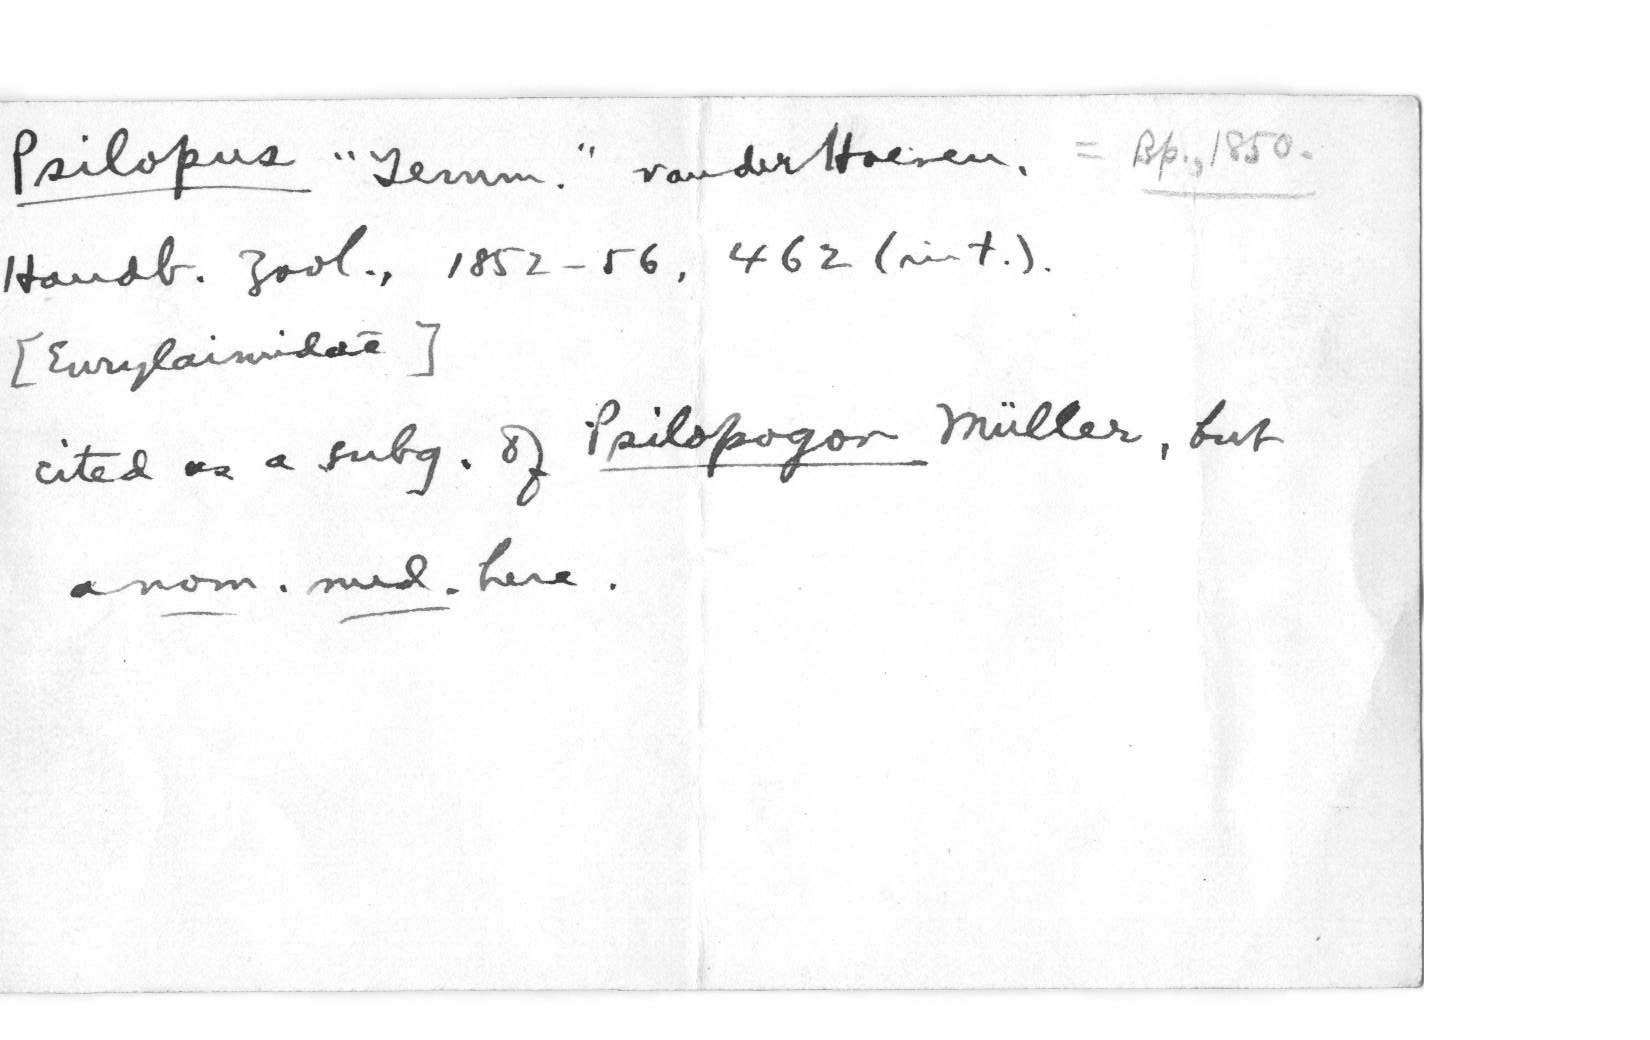 Psilopus "Temm." van der Hoeven, = Bp., 1850.
Handb. Zool., 1852-56, 462 (in t.).
[Eurylaimidae]
cited as a subg. of Psilopogon Müller, but
a nom. nud. here.